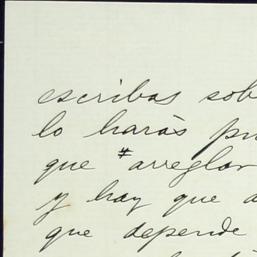 escribas sob
lo harás pu
que # arreglar
y hay que a
que depende